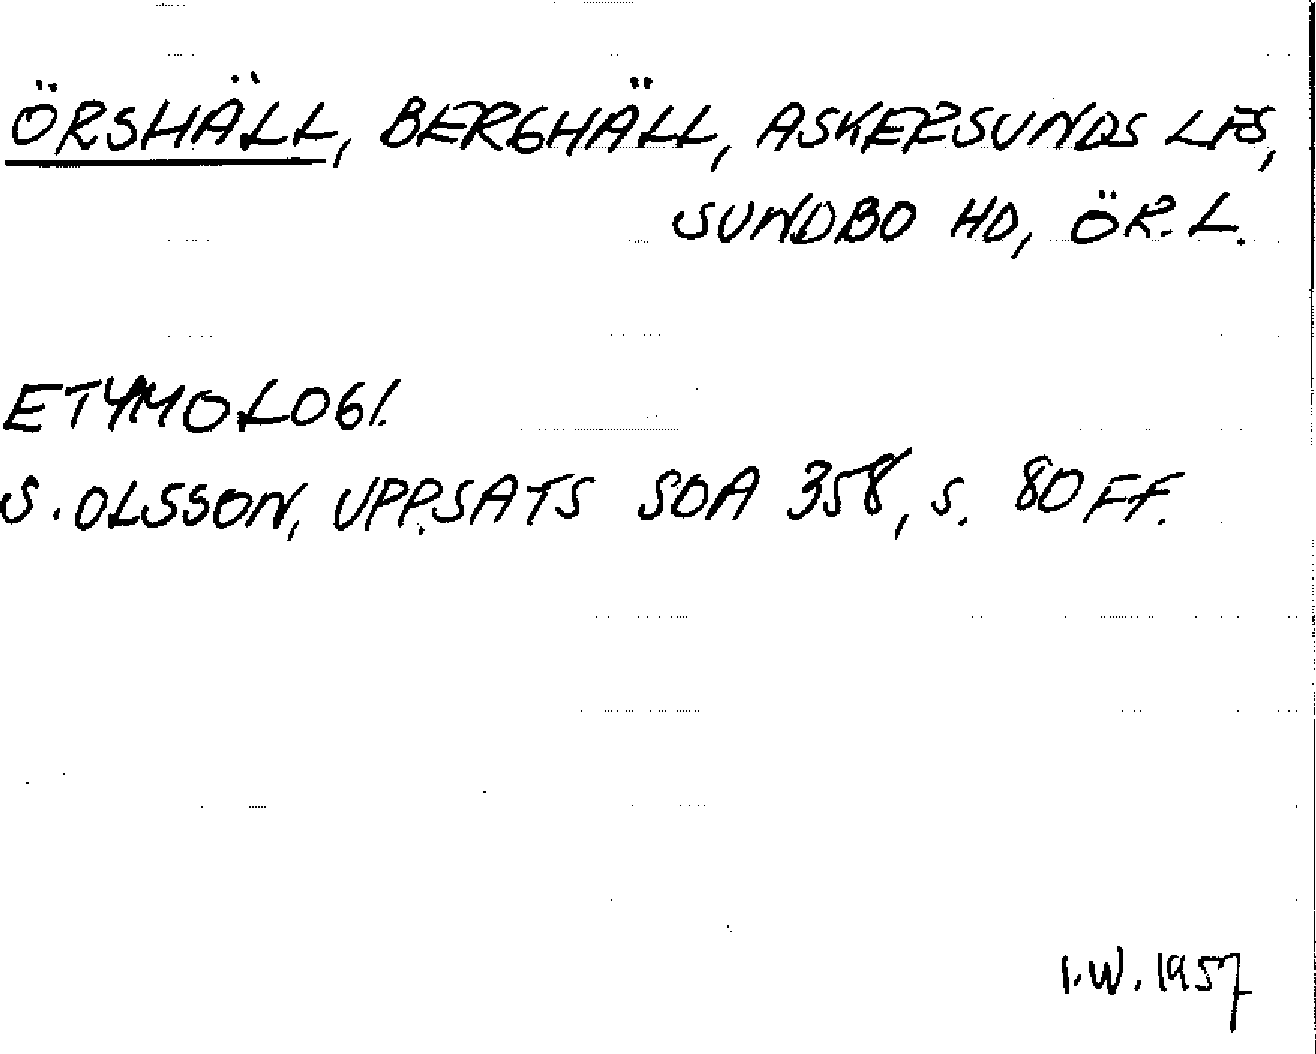 ÖRSHÄLL, BERGHÄLL, ASKERSUNDS LFS,
SUNDBO HD, ÖR.L.
ETYMOLOGI.
S. OLSSON, UPPSATS SOA 358, S. 80 FF.
I.W. 1957